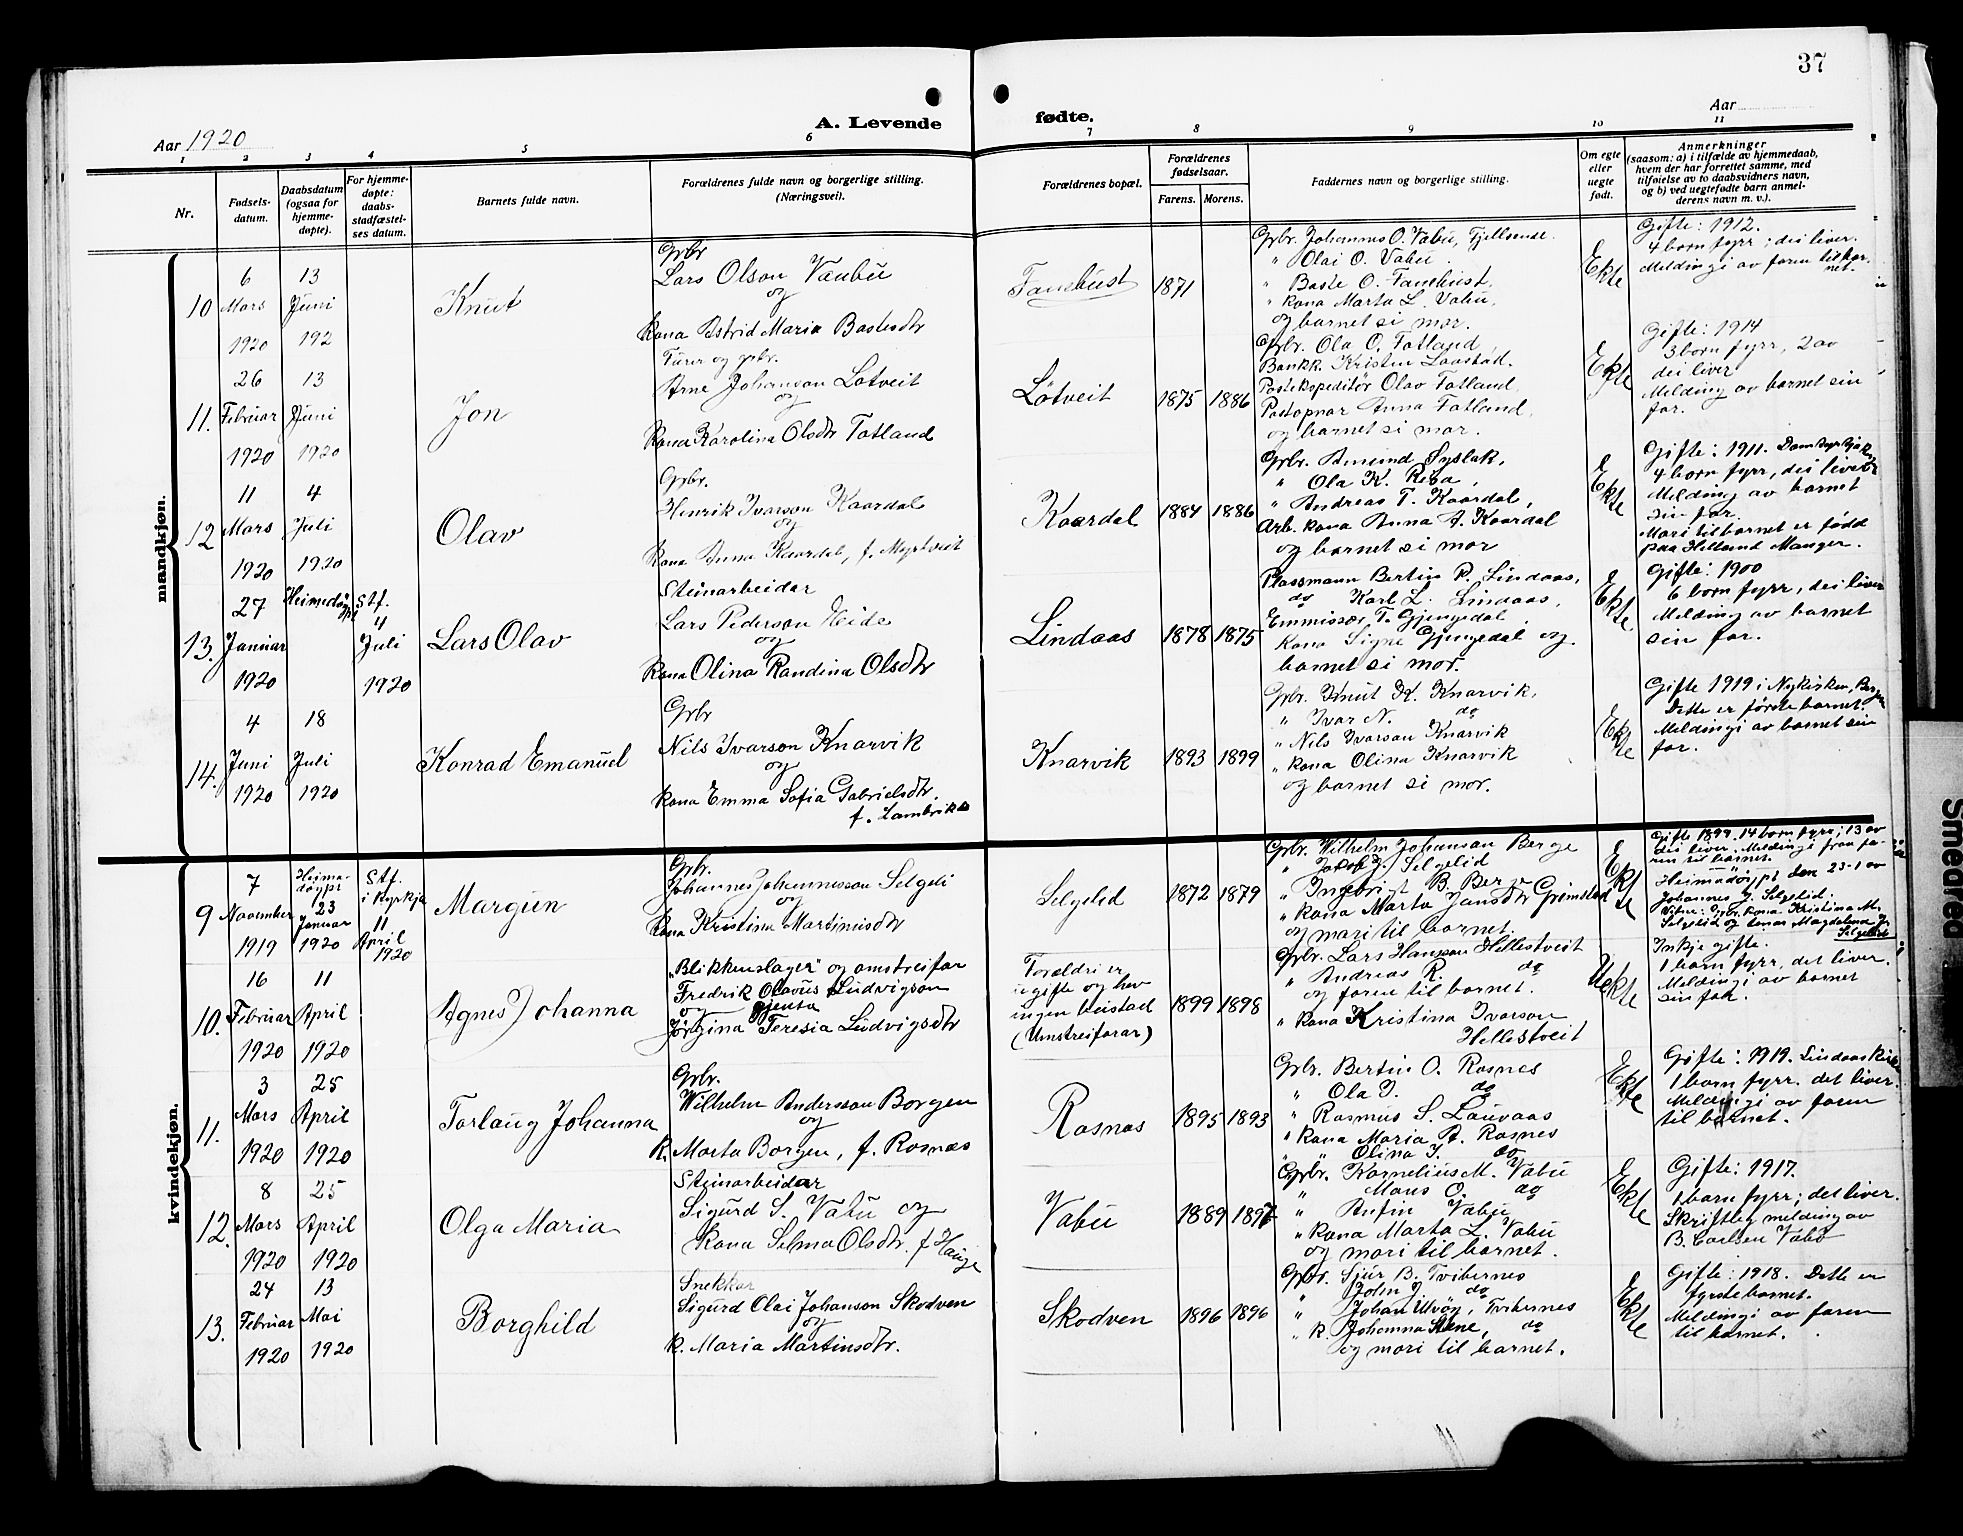 37
Aar 1920
A. Levende
fødte.
Aar
1 2 3 4 5 6 7 8 9 10 11
Nr.
Fødsels-
datum.
Daabsdatum
(ogsaa for
hjemme-
døpte).
For hjemme-
døpte:
daabs-
stadfæstel-
ses datum.
Barnets fulde navn.
Forældrenes fulde navn og borgerlige stilling.
(Næringsvei).
Forældrenes bopæl.
Forældrenes
fødselsaar.
Farens. Morens.
Faddernes navn og borgerlige stilling.
Om egte
eller
uegte
født.
Anmerkninger
(saasom: a) i tilfælde av hjemmedaab,
hvem der har forrettet samme, med
tilføielse av to daabsvidners navn,
og b) ved uegtefødte barn anmel-
derens navn m. v.).
mandkjøn.
10
6
Mars
1920
13
Juni
192
Knut
Grbr
Lars Olson Vaubu
og
kona Astrid Maria Bastesdtr
1871
Grbr. Johannes O. Vabu, Fjellsende.
" Olai O. Vabu.
" Baste O.
" kona Marta L. Vabu,
og barnet si mor.
Ekte
Gifte: 1912.
4 born fyrr; dei liver.
Meldingi av faren til bar-
net.
11.
26
Februar
1920
13
Juni
1920
Jon
Furer og grbr.
Arne Johanson Løtveit
og
kona Karolina Olsdtr Totland
Løtveit
1875 1886
Grbr. Ola O. Totland,
Bankk. Kristen Laastad.
Postekspeditør Olav Totland,
Postopnar Anna Totland,
og barnet si mor.
Ekte
Gifte: 1914
3 born fyrr, 2 av
dei liver
Melding av barnet sin
far.
12
11
Mars
1920
4
Juli
1920
Olav
Grbr.
Henrik Ivarson Kaardal
og
kona Anna Kaardal, f. Myrtveit
Kaardal
1884 1886
Grbr. Amund Syslak,
" Ola K. Risa,
" Andreas T. Kaardal,
Arb. kona Anna A. Kaardal
og barnet si mor
Ekte
Gifte: 1911.
4 born fyrr, dei liver
Melding av barnet
sin far.
Mori til barnet er fødd
paa Helland Manger.
13.
27
Januar
1920
Heimedøypt
Stf.
4
Juli
1920
Lars Olav
Steinarbeidar
Lars Pederson Heide
og
kona Olina Randina Olsdtr
Lindaas
1878 1875
Plassmann Bertin P. Lindaas,
do Karl L. Lindaas,
Emmissær T. Gjengedal
kona Signe Gjengedal og
barnet si mor.
Ekte
Gifte: 1900
6 born fyrr, dei liver
Melding av barnet
sin far.
14.
4
Juni
1920
18
Juli
1920
Konrad Emanuel
Grbr
Nils Ivarson Knarvik
og
kona Emma Sofia Gabrielsdtr.
Knarvik
1893 1899
Grbr. Knut K. Knarvik,
" Ivar N. do
" Nils Ivarson Knarvik
" kona Olina Knarvik
og barnet si mor.
Ekte
Gifte 1919 i Nykirken, Bergen
Dette er første barnet.
Meldingi av barnet sin
far.
kvindekjøn.
9
7
November
1919
Heima-
døypt
23
Januar
1920
Stf.
i kyrkja
11
April
1920
Margun
Grbr.
Johannes Johannesson Selgeli
og
kona Kristina Martinusdtr
Selgelid
1872 1879
Grbr. Wilhelm Johanson Berge
" Jakob J. Selgelid
" Ingebrigt B. Berge
" kona Marta Jansdtr Grimstad
og mori til barnet.
Ekte
Gifte 1899. 14 born fyrr; 13 av
dei liver. Meldingi fraa fa-
ren til barnet.
Heimadøypt den 23-1 av
Johannes J. Selgelid.
Vitne: Grbr. kona Kristina M.
Selgelid og tenar Magdalena J.
Selgelid
10.
16
Februar
1920
11
April
1920
Agnes Johanna
"Blikkenslager" og omstreifar
Fredrik Olavus Ludvigson
og gjenta
Jørgina Teresia Ludvigsdtr
Foreldri er
ugifte og hev
ingen heistad
(Umstreifarar)
1899 1898
Grbr. Lars Hansson Hellestveit
" Andreas R. do
og faren til barnet.
" kona Kristina Ivarson
Hellestveit
Uekte
Inkje gifte.
1 barn fyrr, det liver.
Meldingi av barnet
sin far.
11.
3
Mars
1920
25
April
1920
Torlaug Johanna
Grbr.
Wilhelm Andersson Borgen
og
k. Marta Borgen, f. Rosnæs
Rosnas
1895 1893
Grbr. Bertin O. Rosnes
" Ola J. do
" Rasmus S. Lauvaas
" kona Maria A. Rosnes
" " Olina J. do
Ekte
Gifte: 1919. Lindaas kirke
1 barn fyrr. det liver.
Meldingi av faren
til barnet.
12.
8
Mars
1920
25
April
1920
Olga Maria
Steinarbeidar
Sigurd S. Vabu og
kona Selma Olsdtr. f Hauge
Vabu
1889 1897
Grbr. Kornelius M. Vabu
" Mons O. do
" Anfin Vabu
" kona Marta L. Vabu
og mori til barnet.
Ekte
Gifte: 1917.
1 barn fyrr; det liver.
Skriftleg melding av
B. Carlsen Vabø
13.
24
Februar
1920
13
Mai
1920
Borghild
Snekkar
Sigurd Olai Johanson Skodven
og
k. Maria Martinsdtr.
Skodven
1896 1896
Grbr. Sjur B. Tvibernes
" John J. do
" Johan Urvøy, Tvibernes
" k. Johanna Stene, do
og mori til barnet.
Ekte
Gifte: 1918. Dette er
fyrste barnet.
Meldingi av faren
til barnet.
Smedred